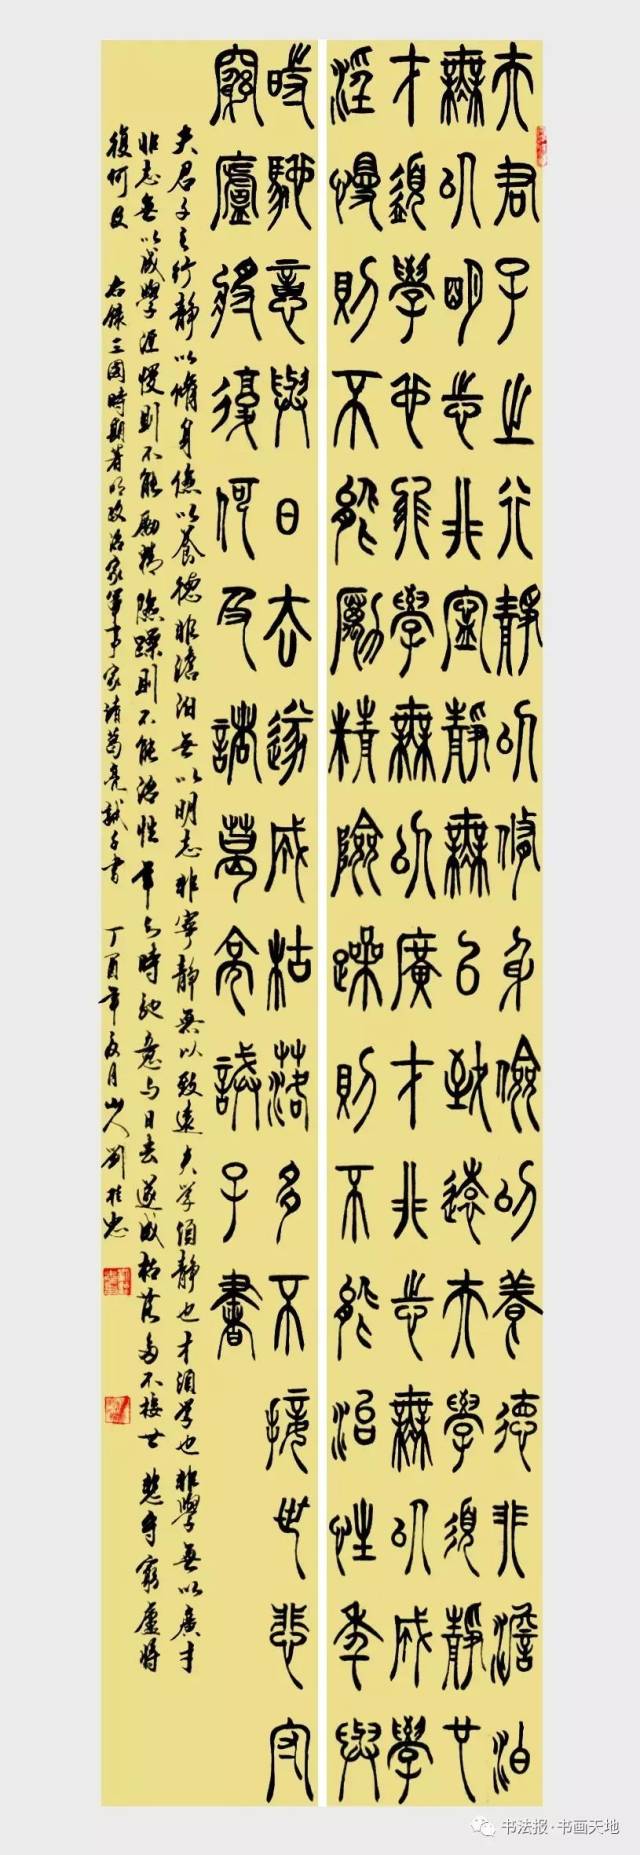 夫君子之行靜以脩身儉以養德非澹泊
無以明志非寧靜無以致遠夫學須靜也
才須學也非學無以廣才非志無以成學
淫慢則不能勵精險躁則不能治性年與
時馳意與日去遂成枯落多不接世悲守
窮廬將復何及諸葛亮誡子書
夫君子之行靜以脩身儉以養德非澹泊無以明志非寧靜無以致遠夫學須靜也才須學也非學無以廣才
非志無以成學淫慢則不能勵精險躁則不能治性年与時馳意与日去遂成枯落多不接世悲守窮廬將
復何及 右錄三國時期著名政治家軍事家諸葛亮誡子書 丁酉年夏月山人劉桂忠
书法报·书画天地